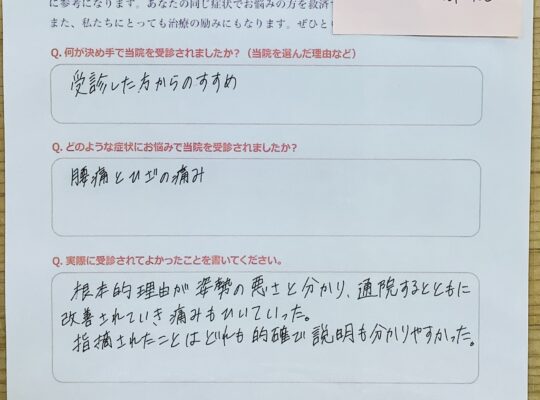 に参考になります。あなたの同じ症状でお悩みの方を救済
また、私たちにとっても治療の励みにもなります。ぜひと
Q. 何が決め手で当院を受診されましたか？（当院を選んだ理由など）
受診した方からのすすめ
Q. どのような症状にお悩みで当院を受診されましたか？
腰痛とひざの痛み
Q. 実際に受診されてよかったことを書いてください。
根本的理由が姿勢の悪さと分かり、通院するとともに
改善されていき痛みもひいていった。
指摘されたことはどれも的確で説明も分かりやすかった。